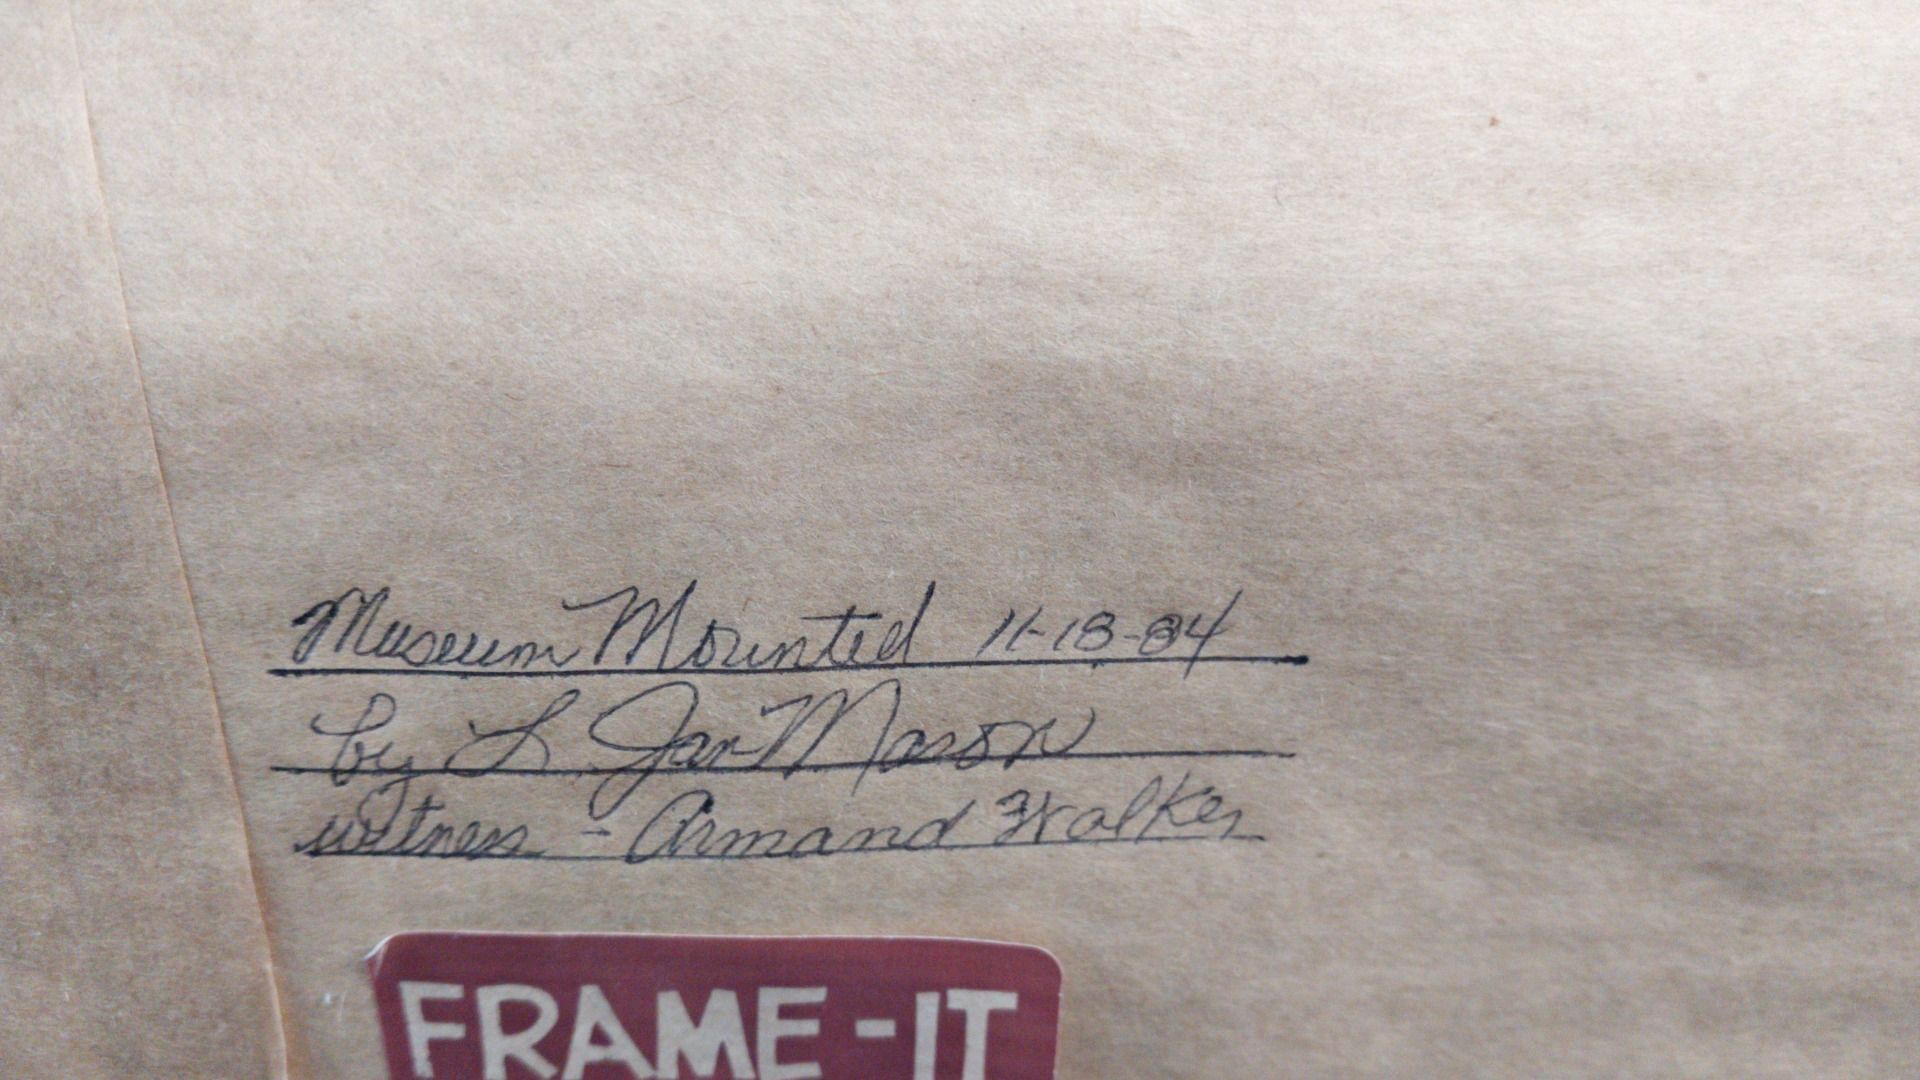 Museum Mounted 11-18-84
by L. Jan Mason
witness - Armand Walker
FRAME-IT